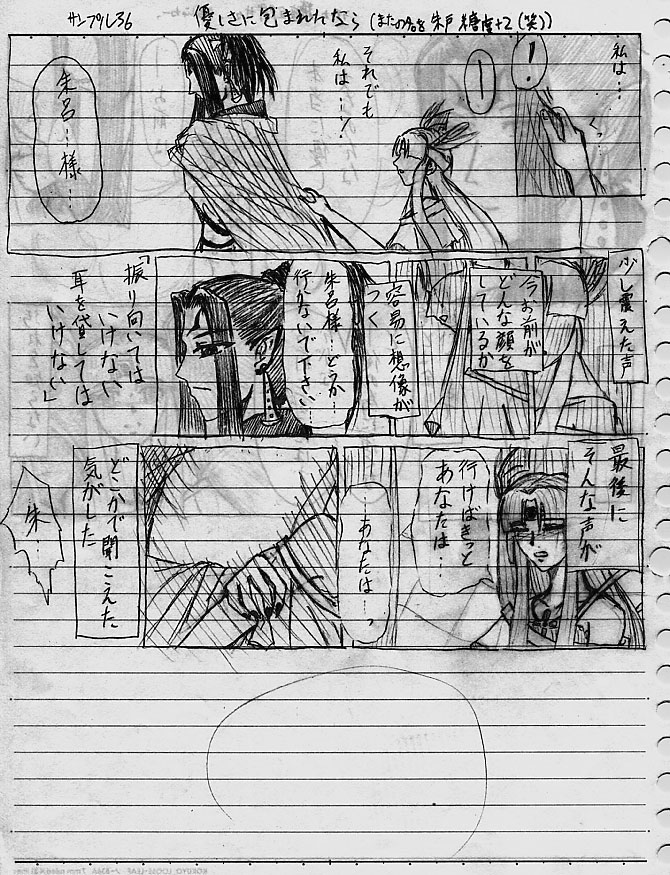 サンプル36
優しさに包まれたなら
私は…
！
くっ
それでも
私は…！
朱呂…様…
少し震えた声
今お前が
どんな顔を
しているか
容易に想像が
つく
朱呂様…どうか…
行かないで下さい…
「振り向いては
いけない
耳を貸しては
いけない」
最後に
そんな声が
行けばきっと
あなたは…
…あなたは…っ
どこかで聞こえた
気がした
朱…
KOKUYO LOOSE-LEAF